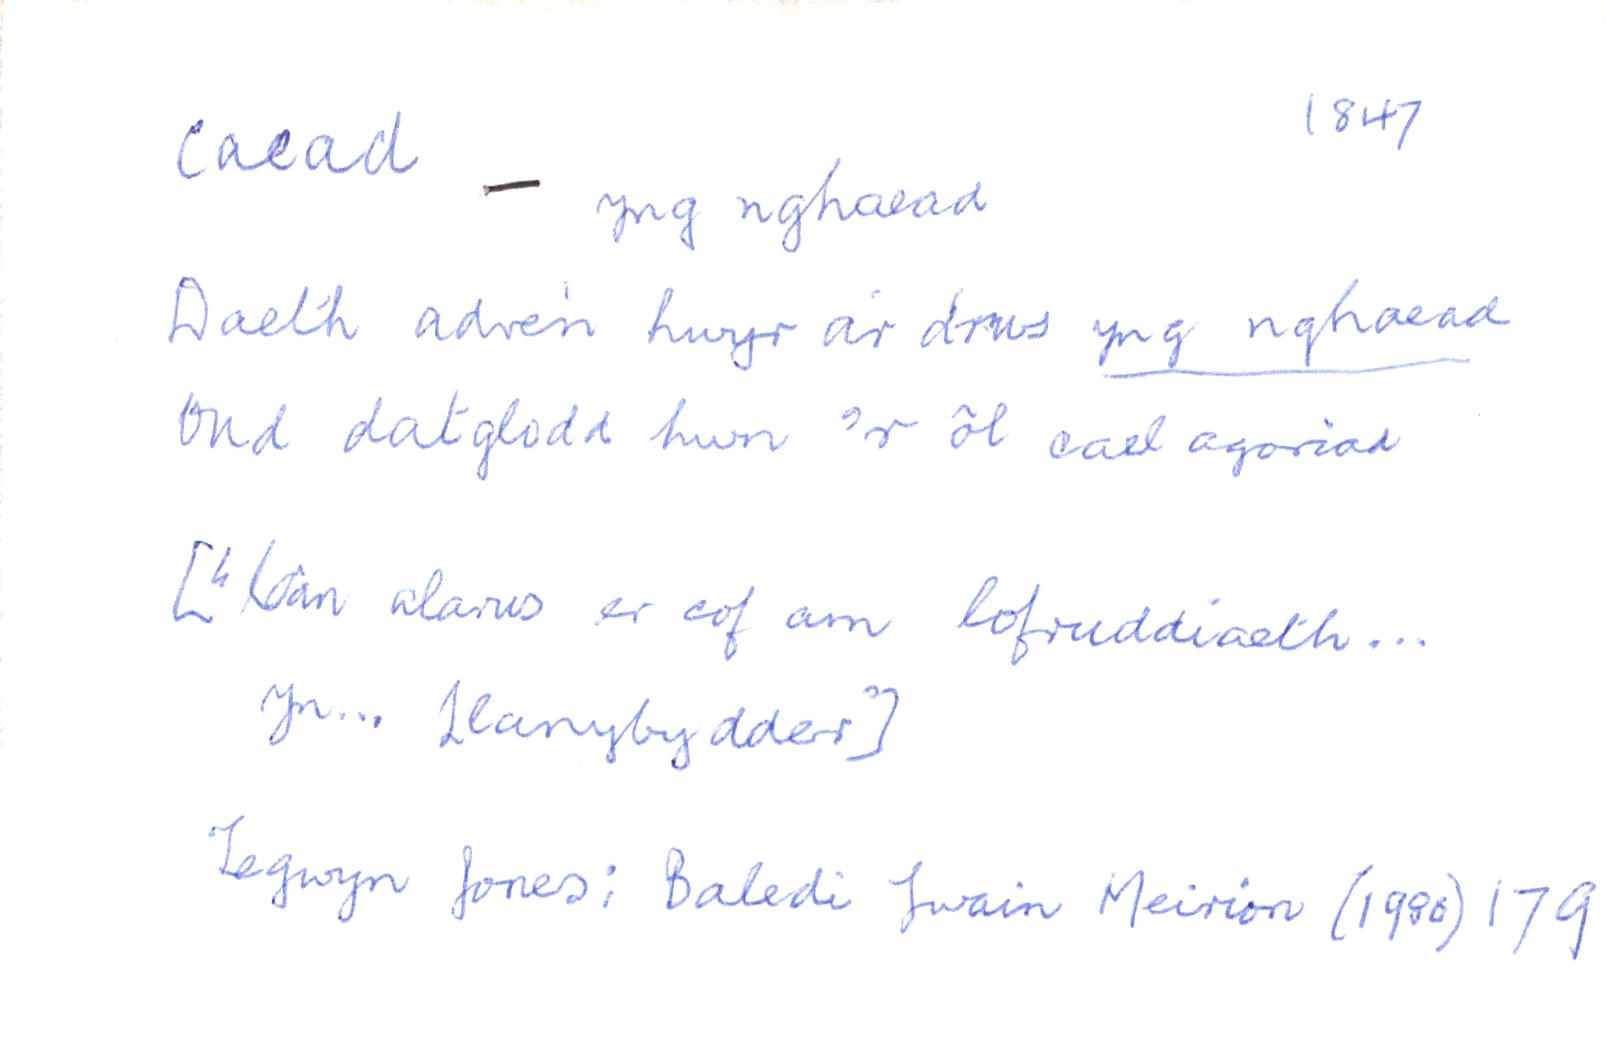 caead 1847
— yng nghaead
Daeth adre'n hwyr a'r drws yng nghaead
Ond datglodd hwn 'r ôl cael agoriad
["Cân alarus er cof am lofruddiaeth...
yn... Llanybydder"]
Tegwyn Jones: Baledi Ywain Meirion (1980) 179